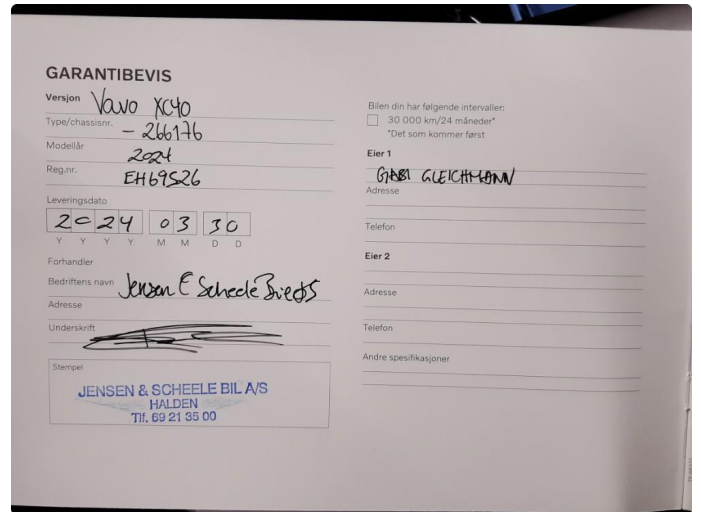 GARANTIBEVIS
Versjon Volvo XC40
Type/chassisnr. - 266176
Modellår 2024
Reg.nr. EH69526
Leveringsdato
2024 03 30
Y Y Y Y M M D D
Forhandler
Bedriftens navn Jensen & Scheele Bil AS
Adresse
Underskrift
Stempel
JENSEN & SCHEELE BIL A/S
HALDEN
Tlf. 69 21 35 00
Bilen din har følgende intervaller:
30 000 km/24 måneder*
*Det som kommer først
Eier 1
GABI GLEICHMANN
Adresse
Telefon
Eier 2
Adresse
Telefon
Andre spesifikasjoner